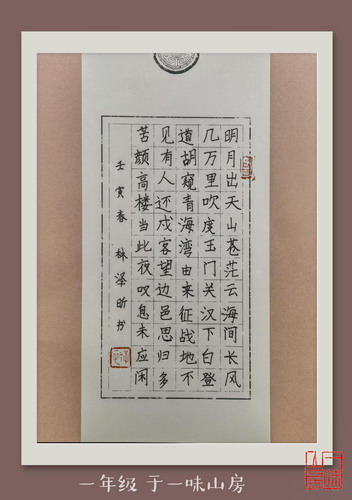 明月出天山苍茫云海间长风
几万里吹度玉门关汉下白登
道胡窥青海湾由来征战地不
见有人还戍客望边邑思归多
苦颜高楼当此夜叹息未应闲
壬寅春 林泽昕书
一年级 于一味山房